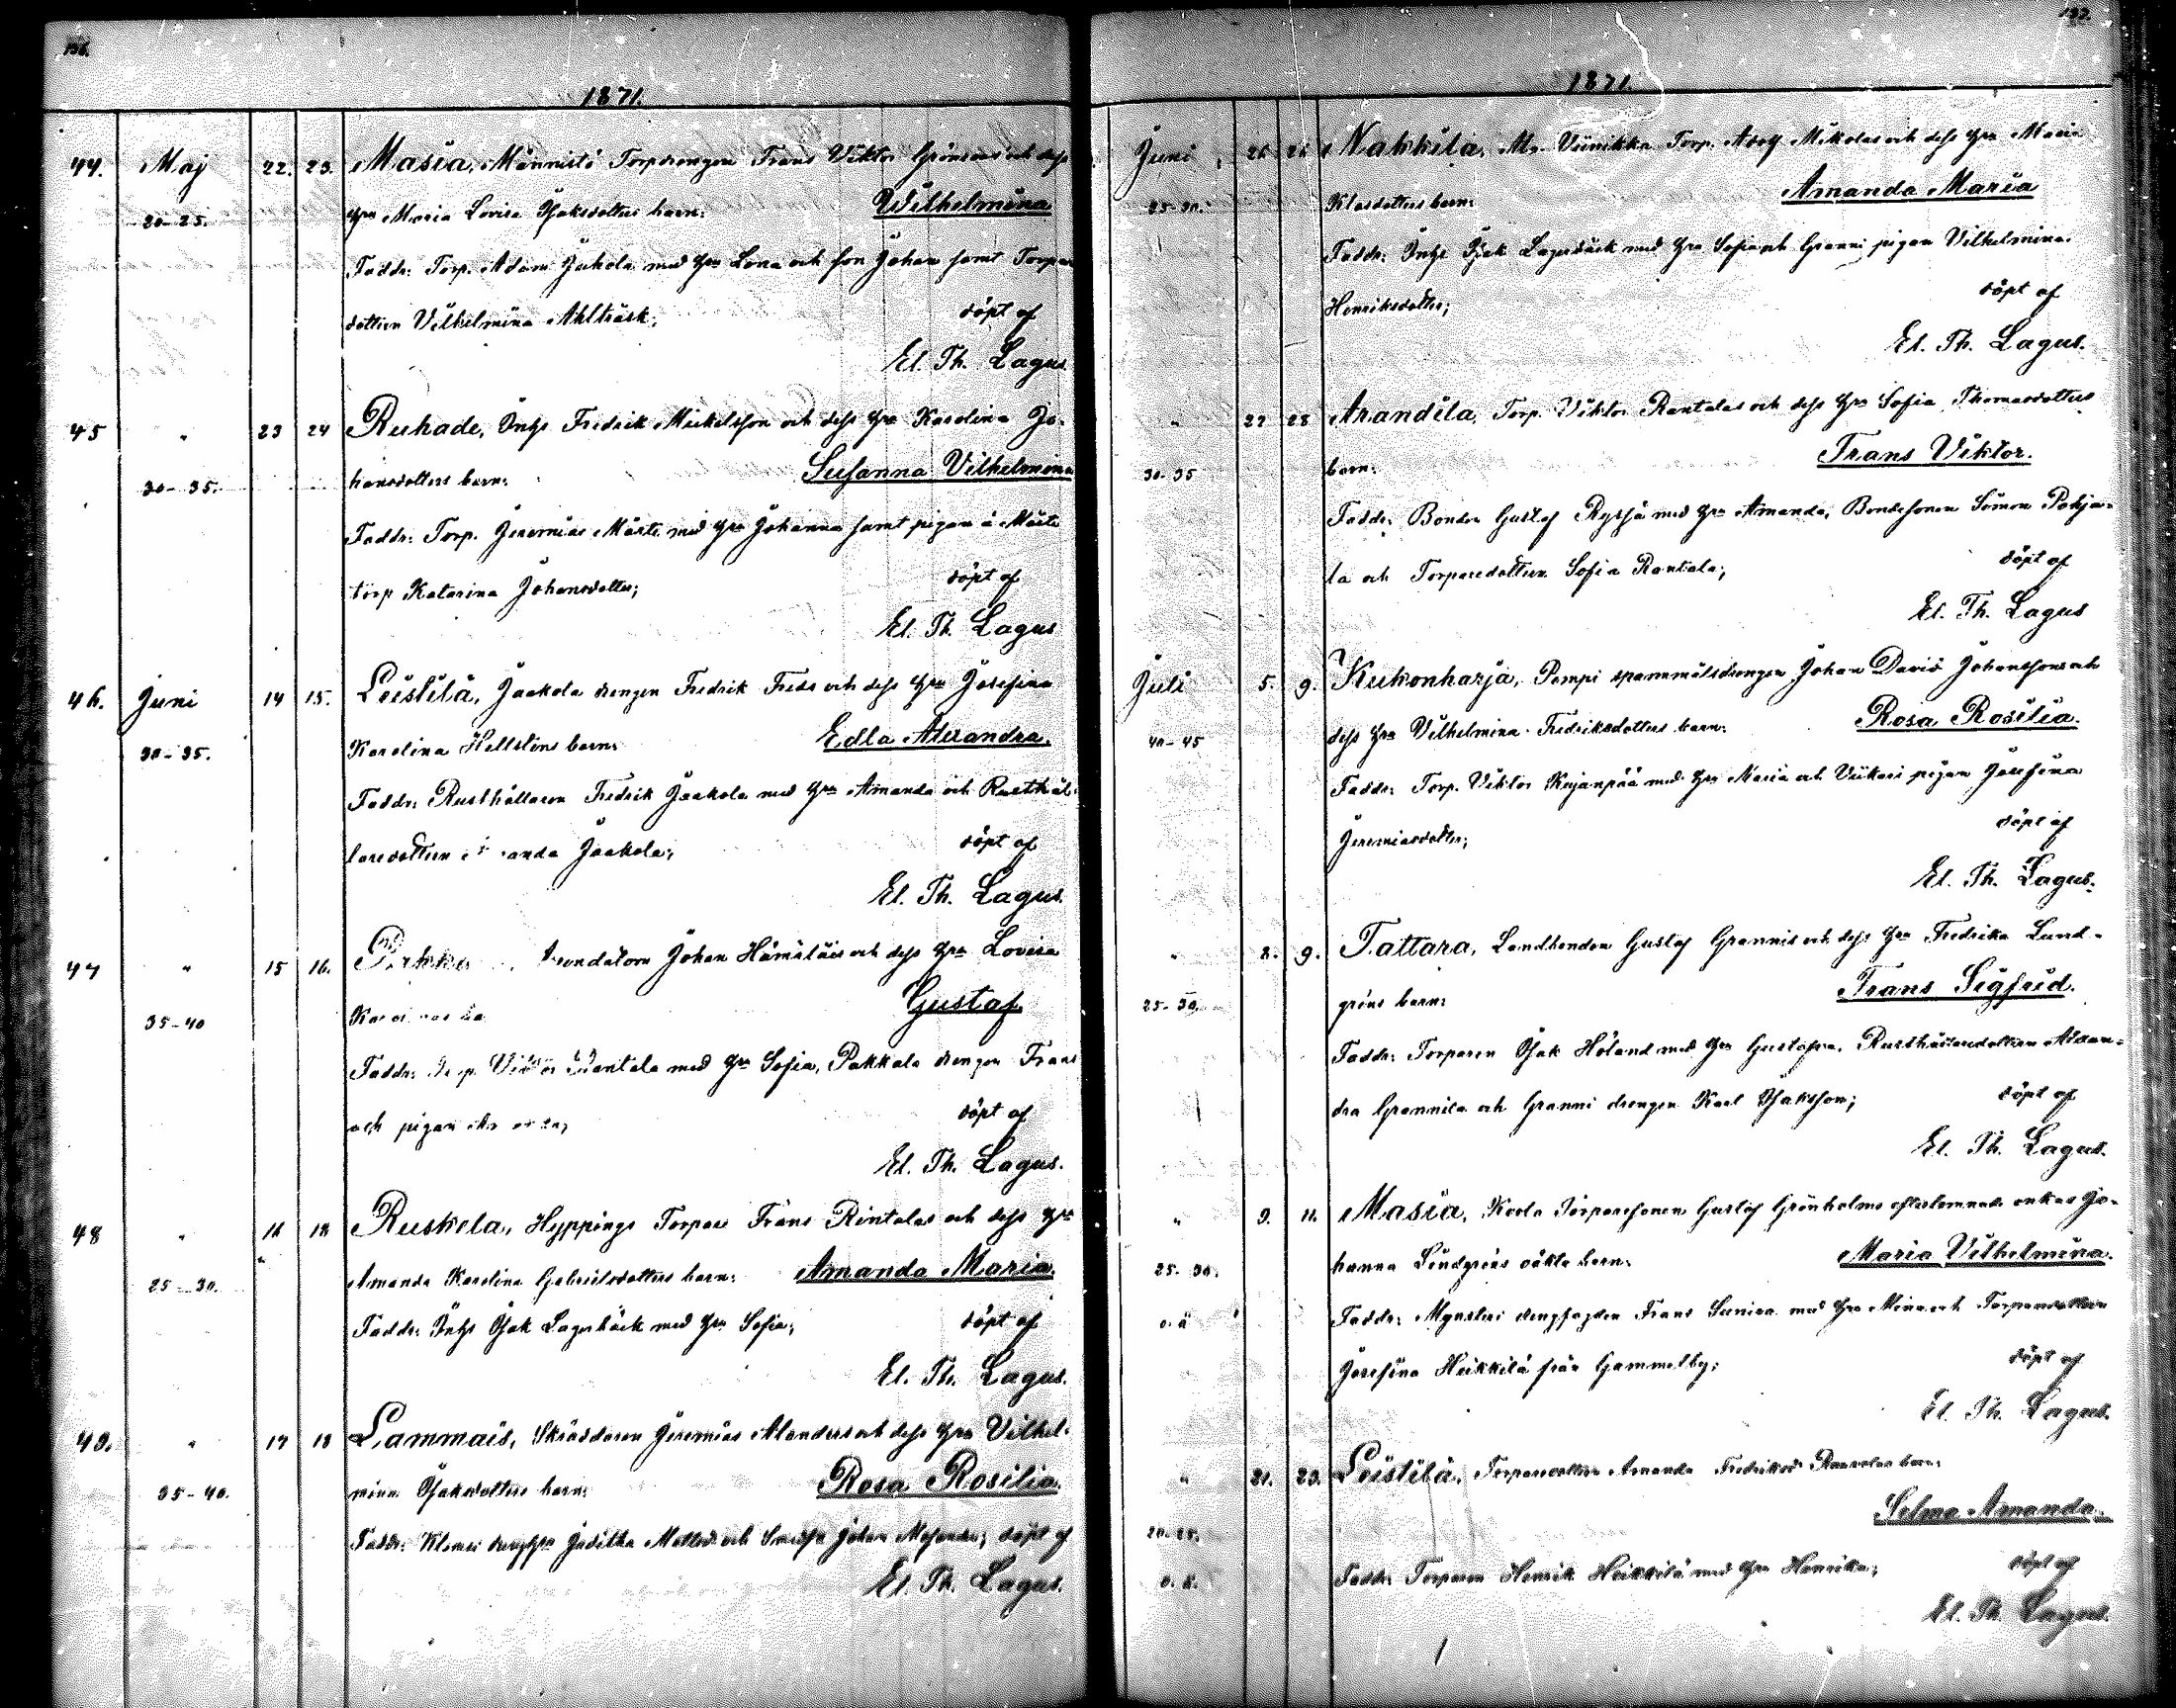 136.
1871.
44. Maj 22. 23. Masia, Männistö Torpdrengen Frans Viktor Grönroos och dess
20-25. hru Maria Lovisa Isaksdotters barn: Wilhelmina
Faddr: Torp. Adam Jukola med hru Lena och son Johan samt Torpare
dottren Vilhelmina Ahlträsk; döpt af
El. Th. Lagus
45 " 23 24 Ruhade, Inhs Fredrik Mickelsson och dess hru Karolina Jo-
30-35. hansdotters barn: Susanna Vilhelmina
Faddr: Torp. Jeremias Märte med hru Johanna samt pigan å Märte
torp Katarina Johansdotter; döpt af
El. Th. Lagus
46. Juni 14 15. Leistilä, Jaakola drengen Fredrik Freds och dess hru Josefina
30-35. Karolina Hellstens barn: Edla Alexandra.
Faddr: Rusthållaren Fredrik Jaakola med hru Amanda och Rusthål-
laredottren Jaakola; döpt af
El. Th. Lagus.
47 " 15 16. Johan Hämäläis och dess hru Lovisa
35-40 Gustaf
Faddr: Torp. Viktor Rantala med hru Sofia, Pakkala drengen Frans
och pigan döpt af
El. Th. Lagus.
48 " 16 18 Ruskela, Hyppings Torpare Frans Rintalas och dess hru
25-30. Amanda Karolina Gabrielsdotters barn: Amanda Maria.
Faddr: Inhs Isak Lagerbäck med hru Sofia; döpt af
El. Th. Lagus.
49. " 17 18 Lammais, Skräddaren Jeremias Alanders och dess hru Vilhel-
35-40. mina Isaksdotters barn: Rosa Rosilia.
Faddr: Juditha och Johan döpt af
El. Th. Lagus.
137.
1871.
Juni 26 26 Nakkila, Viinikka Torp. Adolf Mikolas och dess hru Maria
25-30. Klasdotters barn: Amanda Maria
Faddr: Inhs Isak Lagerbäck med hru Sofia och Granni pigan Vilhelmina
Henriksdotter; döpt af
El. Th. Lagus.
" 27 28 Arandila, Torp. Viktor Rantalas och dess hru Sofia Thomasdotters
30-35 barn: Frans Viktor.
Faddr: Bonden Gustaf Ryssjä med hru Amanda, Bondesonen Simon Pohja-
la och Torparedottren Sofia Rantala; döpt af
El. Th. Lagus
Juli 5. 9. Kukonharja, Pompi spannmålsdrengen Johan David Johanssons och
40-45 dess hru Vilhelmina Fredriksdotters barn: Rosa Rosilia.
Faddr: Torp. Viktor Kujanpää med hru Maria och Viikari pigan Josefina
Jeremiasdotter; döpt af
El. Th. Lagus.
" 8. 9. Tattara, Landbonden Gustaf Grannis och dess hru Fredrika Lund-
25-30. grens barn: Frans Sigfrid.
Faddr: Torparen Isak Höland med hru Gustafva, Rusthållaredottren Alexan-
dra Grannila och Granni drengen Karl Isaksson; döpt af
El. Th. Lagus.
" 9. 11. Masia, Korla Torparesonen Gustaf Grönholms efterlemnade enkas Jo-
25-30. hanna Lindgrens oäkta barn: Maria Vilhelmina.
o. ä. Faddr: Frans Sunica med hru Mina och Torparedottren
Josefina Heikkilä från Gammelby; döpt af
El. Th. Lagus.
" 21. 23. Leistilä, Torparedottren Amanda Fredriksd. barn:
20-25. Selma Amanda.
o. ä. Faddr: Torparen Henrik Heikkilä med hru Henrika; döpt af
El. Th. Lagus.